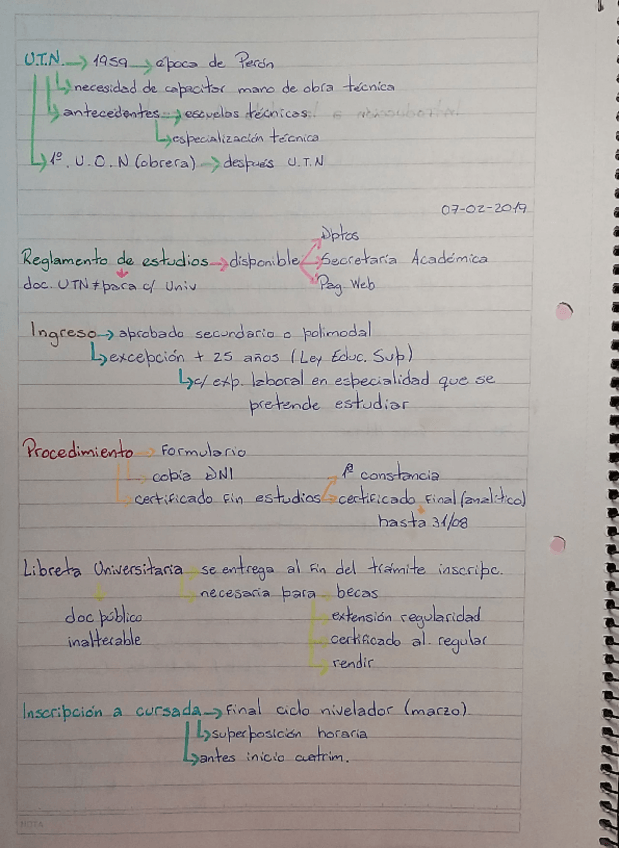 U.T.N. → 1959 → época de Perón
↳ necesidad de capacitar mano de obra técnica
↳ antecedentes → escuelas técnicas
↳ especialización técnica
↳ 1º. U.O.N (obrera) → después U.T.N
07-02-2019
Dptos
Reglamento de estudios → disponible → Secretaría Académica
doc. UTN ≠ para c/ Univ → Pag. Web
Ingreso → aprobado secundario o polimodal
↳ excepción + 25 años (Ley Educ. Sup)
↳ c/ exp. laboral en especialidad que se
pretende estudiar
Procedimiento → Formulario
→ copia DNI → 1º constancia
→ certificado fin estudios → certificado final (analítico)
hasta 31/08
Libreta Universitaria → se entrega al fin del trámite inscripc.
→ necesaria para → becas
doc público → extensión regularidad
inalterable → certificado al. regular
→ rendir
Inscripción a cursada → Final ciclo nivelador (marzo)
↳ superposición horaria
↳ antes inicio cuatrim.
NOTA